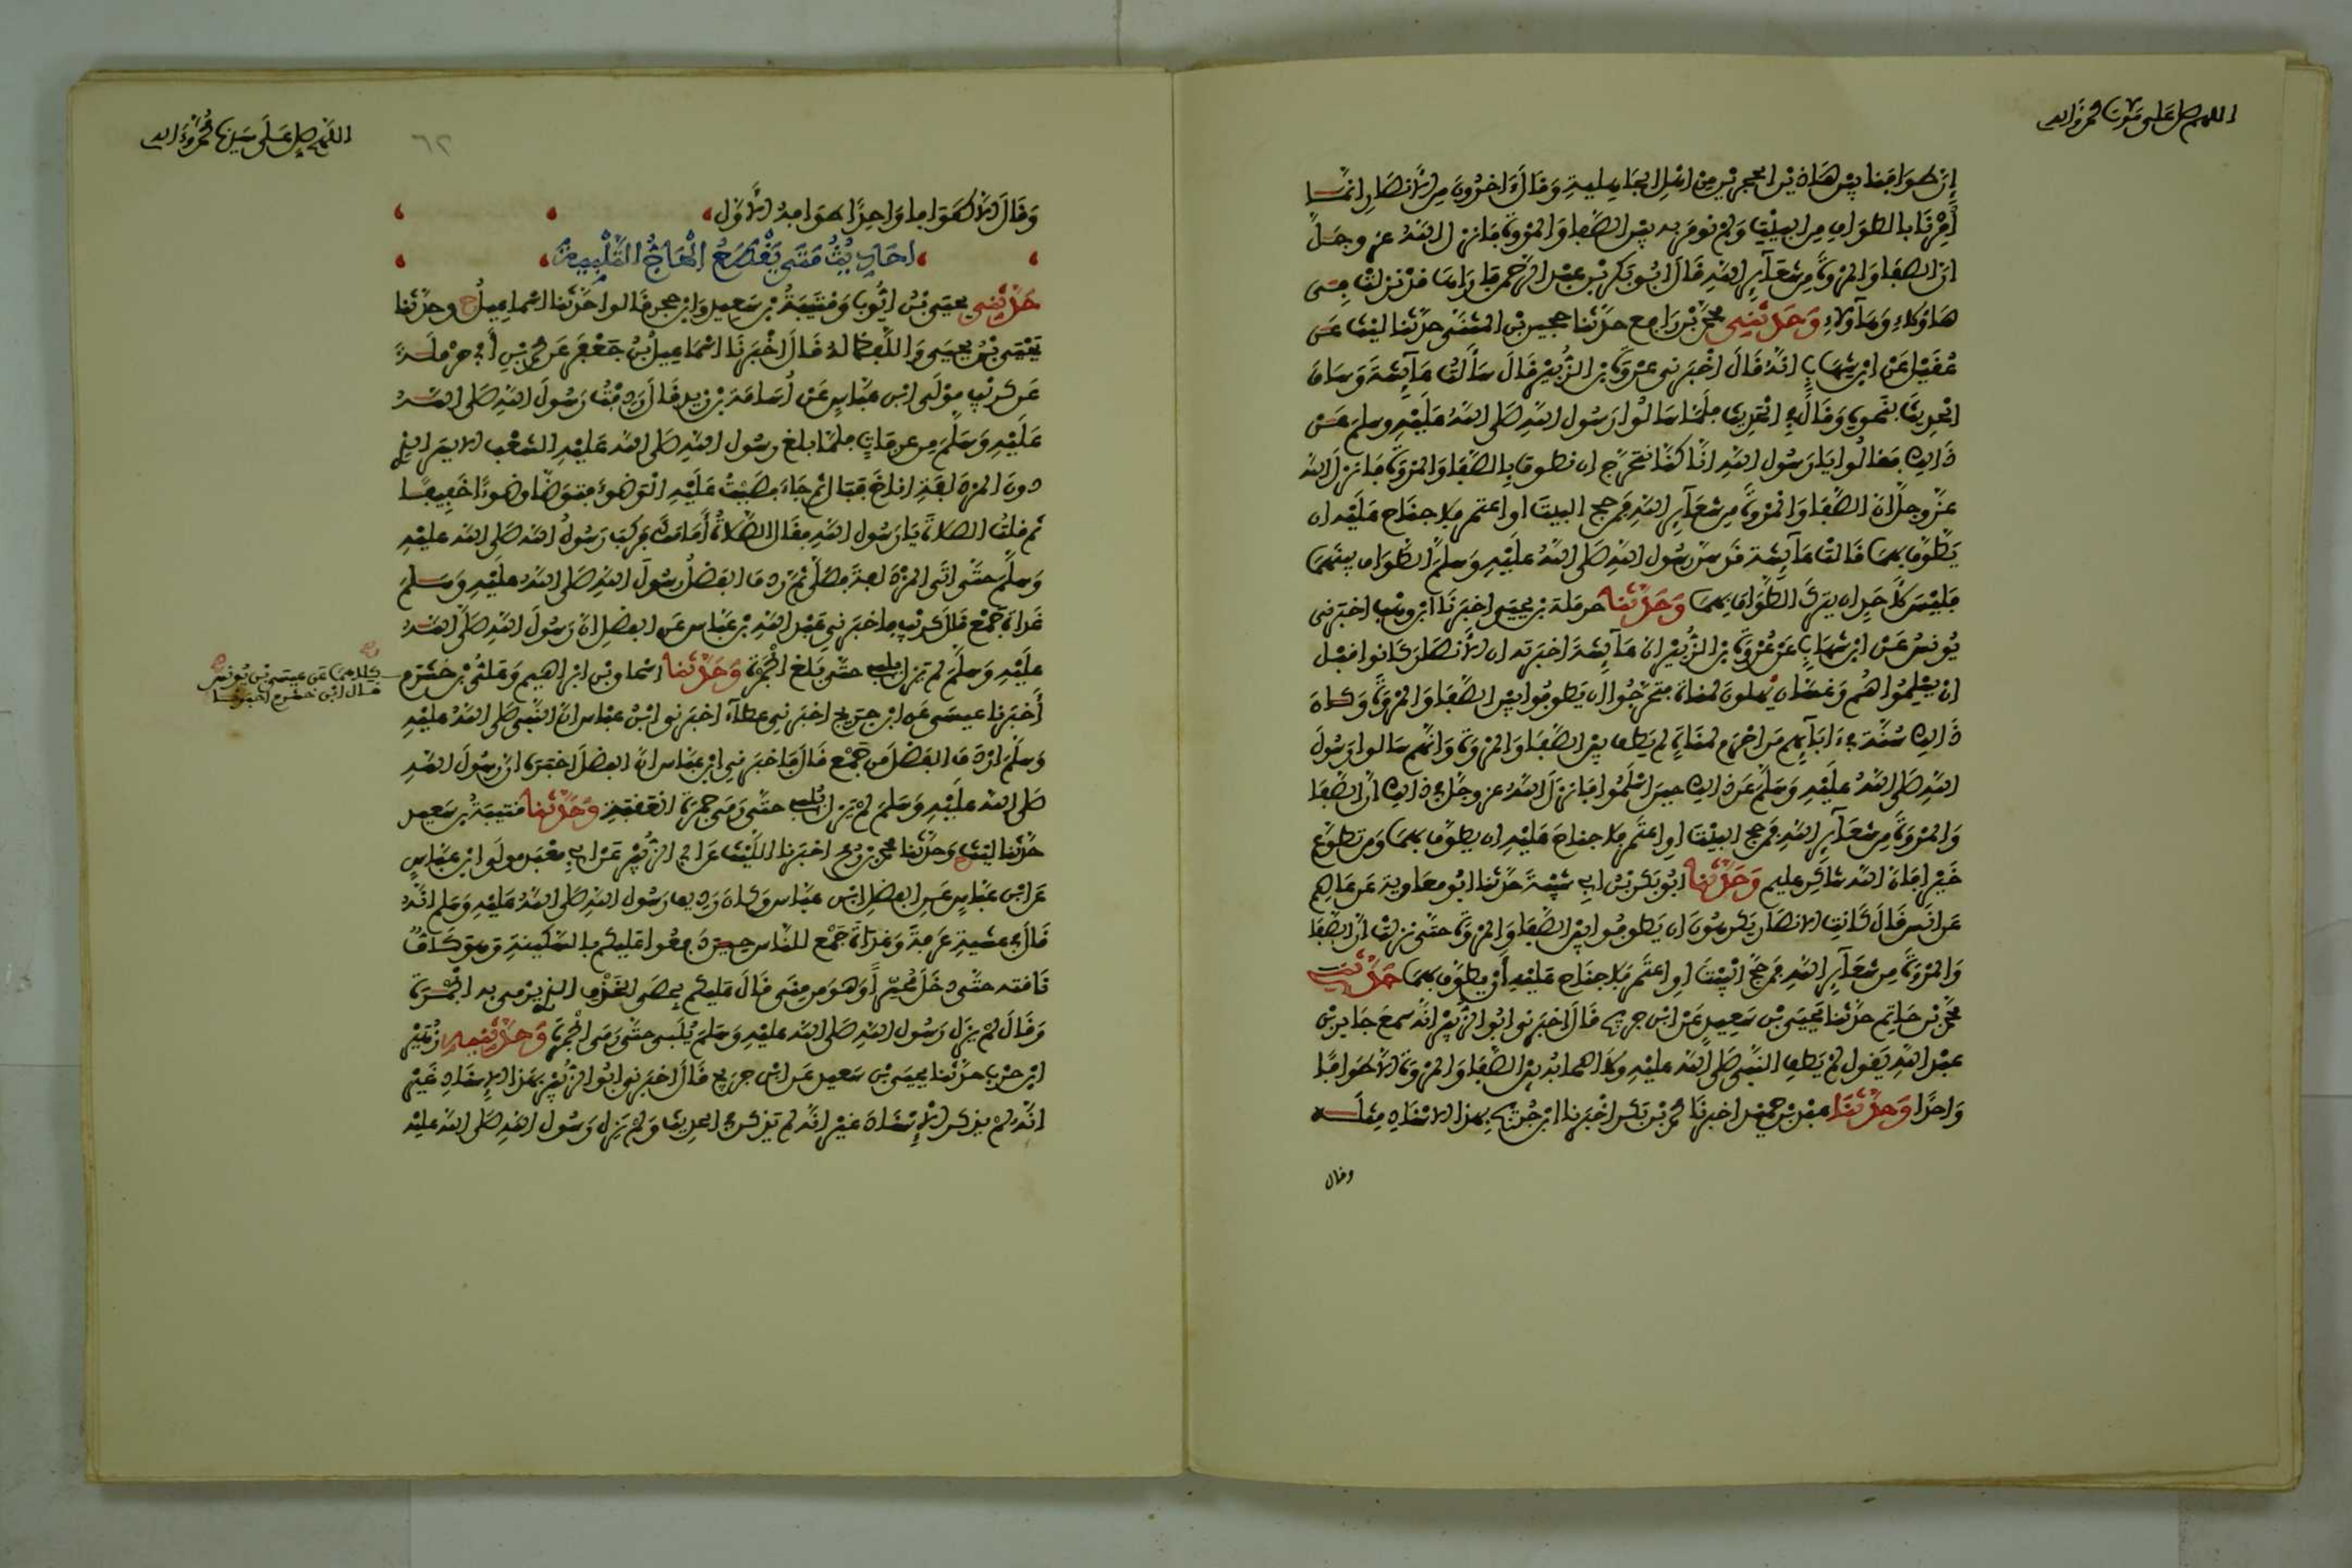 اللهم صل على سيدنا محمد وءاله
إن طوافنا بين هاذين الحجرين من أمر الجاهلية وقال ءاخرون من الأنصار إنما
أمرنا بالطواف من البيت ولم نومر به بين الصفا والمروة فأنزل الله عز وجل
إن الصفا والمروة من شعآئر الله قال أبو بكر بن عبد الرحمن فأراها قد نزلت في
هاؤلاء وهآؤلاء وحدثني محمد بن رافع حدثنا حجين بن المثنى حدثنا ليث عن
عقيل عن ابن شهاب أنه قال أخبرني عروة بن الزبير قال سألت عآئشة وساق
الحديث بنحوه وقال في الحديث فلما سألوا رسول الله صلى الله عليه وسلم عن
ذالك فقالوا يا رسول الله إنا كنا نتحرج ان نطوف بالصفا والمروة فأنزل الله
عز وجل إن الصفا والمروة من شعآئر الله فمن حج البيت او اعتمر فلا جناح عليه ان
يطوف بهما قالت عآئشة قد سن رسول الله صلى الله عليه وسلم الطواف بينهما
فليس لأحد ان يترك الطواف بهما وحدثنا حرملة بن يحيى اخبرنا ابن وهب اخبرني
يونس عن ابن شهاب عن عروة بن الزبير ان عآئشة اخبرته ان الأنصار كانوا قبل
ان يسلموا هم وغسان يهلون لمناة فتحرجوا ان يطوفوا بين الصفا والمروة وكان
ذالك سنة في ءابآئهم من احرم لمناة لم يطف بين الصفا والمروة وانهم سألوا رسول
الله صلى الله عليه وسلم عن ذالك حين اسلموا فأنزل الله عز وجل في ذالك ان الصفا
والمروة من شعآئر الله فمن حج البيت او اعتمر فلا جناح عليه ان يطوف بهما ومن تطوع
خيرا فإن الله شاكر عليم وحدثنا ابو بكر بن ابي شيبة حدثنا ابو معاوية عن عاصم
عن انس قال كانت الانصار يكرهون ان يطوفوا بين الصفا والمروة حتى نزلت ان الصفا
والمروة من شعآئر الله فمن حج البيت او اعتمر فلا جناح عليه أن يطوف بهما حدثني
محمد بن حاتم حدثنا يحيى بن سعيد عن ابن جريج قال اخبرني ابو الزبير انه سمع جابر بن
عبد الله يقول لم يطف النبي صلى الله عليه ولا اصحابه بين الصفا والمروة الا طوافا
واحدا وحدثنا عبد بن حميد اخبرنا محمد بن بكر اخبرنا ابن جريج بهذا الاسناد مثله
وقال
اللهم صل على سيدنا محمد وءاله
٦٢
وقال الا طوافا واحدا طوافه الأول
احاديث متى يقطع الحاج التلبية
حدثني يحيى بن ايوب وقتيبة بن سعيد وابن حجر قالوا حدثنا اسماعيل ح وحدثنا
يحيى بن يحيى واللفظ له قال اخبرنا اسماعيل بن جعفر عن محمد بن أبي حرملة
عن كريب مولى ابن عباس عن أسامة بن زيد قال ردفت رسول الله صلى الله
عليه وسلم من عرفات فلما بلغ رسول الله صلى الله عليه الشعب الايسر الذي
دون المزدلفة اناخ فبال ثم جاء فصببت عليه الوضوء فتوضأ وضوءا خفيفا
ثم قلت الصلاة يا رسول الله فقال الصلاة أمامك فركب رسول الله صلى الله عليه
وسلم حتى اتى المزدلفة فصلى ثم ردف الفضل رسول الله صلى الله عليه وسلم
غداة جمع قال كريب فاخبرني عبد الله بن عباس عن الفضل ان رسول الله صلى الله
عليه وسلم لم يزل يلبي حتى بلغ الجمرة وحدثنا اسحاق بن ابراهيم وعلي بن خشرم
كلاهما عن عيسى بن يونس
قال ابن خشرم اخبرنا
أخبرنا عيسى عن ابن جريج اخبرني عطآء اخبرني ابن عباس ان النبي صلى الله عليه
وسلم اردف الفضل من جمع قال فاخبرني ابن عباس ان الفضل اخبره ان رسول الله
صلى الله عليه وسلم لم يزل يلبي حتى رمى جمرة العقبة وحدثنا قتيبة بن سعيد
حدثنا ليث ح وحدثنا محمد بن رمح اخبرنا الليث عن ابي الزبير عن ابي معبد مولى ابن عباس
عن ابن عباس عن الفضل ابن عباس وكان رديف رسول الله صلى الله عليه وسلم انه
قال في عشية عرفة وغداة جمع للناس حين دفعوا عليكم بالسكينة وهو كاف
ناقته حتى دخل محسرا وهو من منى قال عليكم بحصى الخذف الذي يرمى به الجمرة
وقال لم يزل رسول الله صلى الله عليه وسلم يلبي حتى رمى الجمرة وحدثنيه زهير
ابن حرب حدثنا يحيى بن سعيد عن ابن جريج قال اخبرني ابو الزبير بهذا الإسناد غير
انه لم يذكر في الحديث ولم يزل رسول الله صلى الله عليه